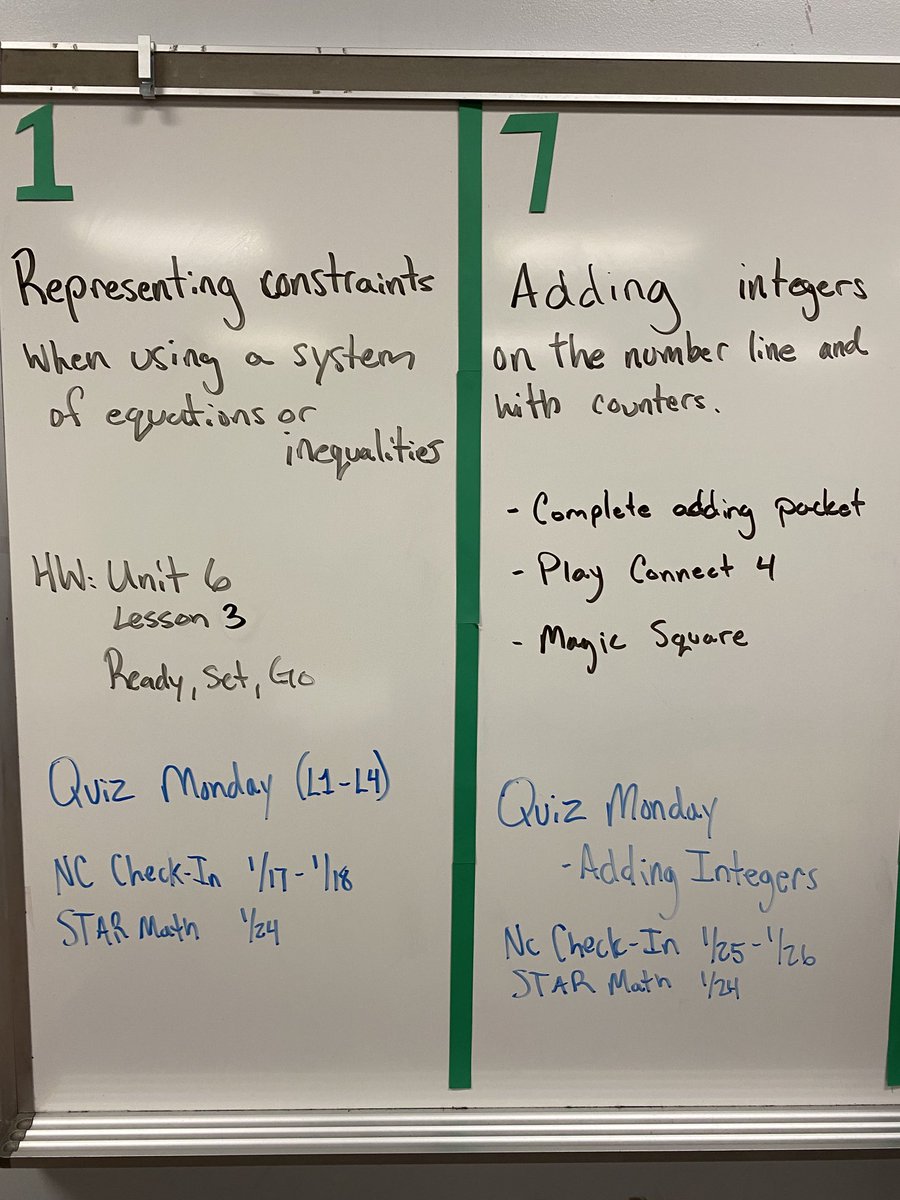 1
Representing constraints
when using a system
of equations or
inequalities
HW: Unit 6
Lesson 3
Ready, Set, Go
Quiz Monday (L1-L4)
NC Check-In 1/17-1/18
STAR Math 1/24
7
Adding integers
on the number line and
with counters.
- Complete adding packet
- Play Connect 4
- Magic Square
Quiz Monday
- Adding Integers
NC Check-In 1/25-1/26
STAR Math 1/24